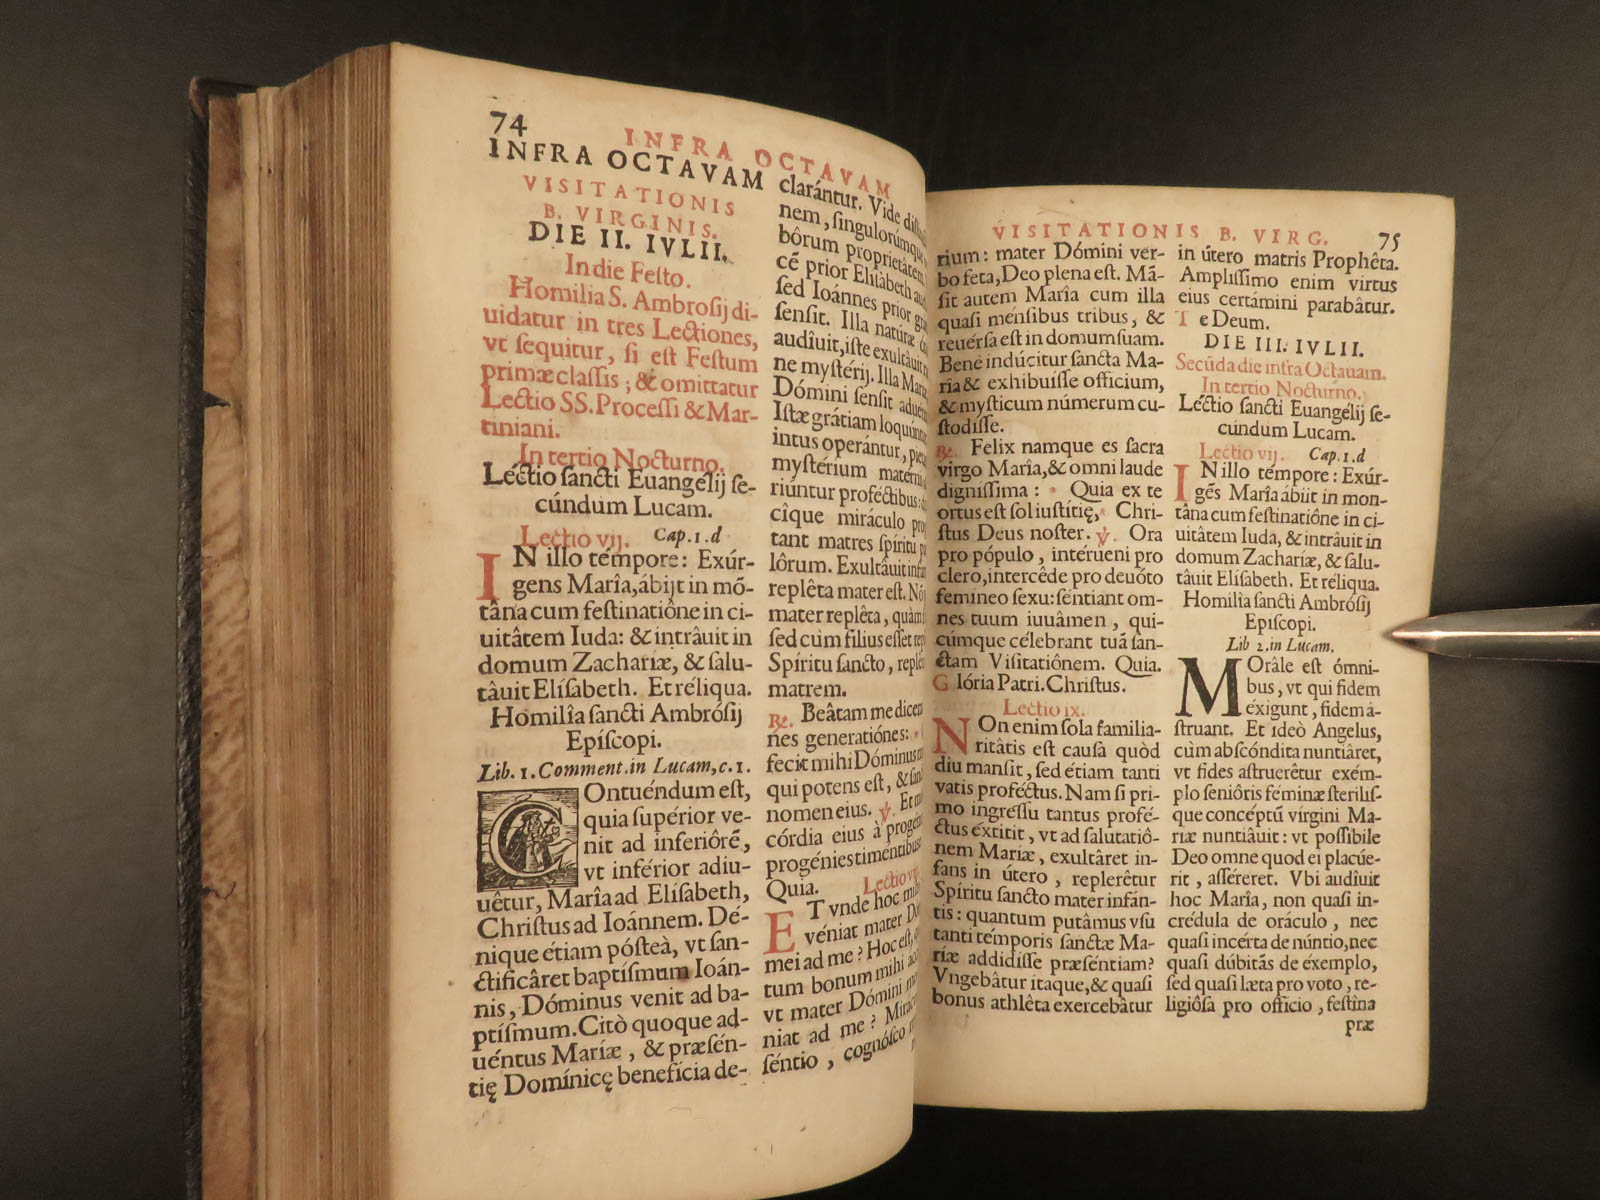 74
INFRA OCTAVAM
INFRA OCTAVAM
VISITATIONIS
B. VIRGINIS.
DIE II. IVLII.
In die Festo.
Homilia S. Ambrosij di-
uidatur in tres Lectiones,
vt sequitur, si est Festum
primæ classis; & omittatur
Lectio SS. Processi & Mar-
tiniani.
In tertio Nocturno.
Léctio sancti Euangélij se-
cúndum Lucam.
Lectio vij. Cap. 1. d
IN illo témpore: Exúr-
gens Marîa, ábijt in mõ-
tâna cum festinatiône in ci-
uitâtem Iuda: & intrâuit in
domum Zachariæ, & salu-
tâuit Elísabeth. Et réliqua.
Homilîa sancti Ambrósij
Epíscopi.
Lib. 1. Comment. in Lucam, c. 1.
COntuéndum est,
quia supérior ve-
nit ad inferiôrẽ,
vt inférior adiu-
uêtur, Marîa ad Elísabeth,
Christus ad Ioánnem. Dé-
nique étiam pósteà, vt san-
ctificâret baptísmum Ioán-
nis, Dóminus venit ad ba-
ptísmum. Citò quoque ad-
uéntus Maríæ, & præsén-
tię Domínicę benefícia de-
clarántur. Vide
nem, singulorúmque
bôrum proprietâtem
cẽ prior Elísabeth
sed Ioánnes prior
sensit. Illa natúræ
audîuit, iste exultâuit
ne mystérij. Illa
Dómini sensit
Istæ grátiam loquúntur
intus operántur,
mystérium
riúntur proféctibus:
cîque miráculo
tant matres spíritu
lôrum. Exultâuit
replêta mater est. Nõ
mater replêta, quàm
sed cùm fílius esset
Spíritu sancto,
matrem.
℟. Beâtam me dicent
nes generatiónes: *
fecit mihi Dóminus
qui potens est, &
nomen eius. ℣. Et
córdia eius à
progénies timéntibus
Quia.
Lectio
ET vnde hoc mihi
véniat mater
mei ad me? Hoc est,
tum bonum mihi
vt mater Dómini
niat ad me?
séntio, cognósco
VISITATIONIS B. VIRG. 75
rium: mater Dómini ver-
bo feta, Deo plena est. Mã-
sit autem Marîa cum illa
quasi mensibus tribus, &
reuérsa est in domum suam.
Benè indúcitur sancta Ma-
rîa & exhibuísse officium,
& mysticum númerum cu-
stodísse.
℟. Felix namque es sacra
virgo Marîa, & omni laude
digníssima: * Quia ex te
ortus est sol iustítię, * Chri-
stus Deus noster. ℣. Ora
pro pópulo, intérueni pro
clero, intercêde pro deuóto
femíneo sexu: séntiant om-
nes tuum iuuâmen, qui-
cúmque célebrant tuã san-
ctam Visitatiônem. Quia.
Glória Patri. Christus.
Lectio ix.
NOn enim sola familia-
ritâtis est causa quòd
diu mansit, sed étiam tanti
vatis proféctus. Nam si pri-
mo ingréssu tantus profé-
ctus éxtitit, vt ad salutatiô-
nem Maríæ, exultâret in-
fans in útero, replerêtur
Spíritu sancto mater infán-
tis: quantum putâmus vsu
tanti témporis sanctæ Ma-
ríæ addidísse præséntiam?
Vngebâtur ítaque, & quasi
bonus athlêta exercebâtur
in útero matris Prophêta.
Amplíssimo enim virtus
eius certámini parabâtur.
Te Deum.
DIE III. IVLII.
Secũda die infra Octauam.
In tertio Nocturno.
Léctio sancti Euangélij se-
cúndum Lucam.
Lectio vij. Cap. 1. d
IN illo témpore: Exúr-
gẽs Marîa ábijt in mon-
tâna cum festinatiône in ci-
uitâtem Iuda, & intrâuit in
domum Zachariæ, & salu-
tâuit Elísabeth. Et réliqua.
Homilîa sancti Ambrósij
Epíscopi.
Lib 2. in Lucam.
MOrâle est ómni-
bus, vt qui fidem
éxigunt, fidem á-
struant. Et ídeò Angelus,
cùm abscóndita nuntiâret,
vt fides astruerêtur exém-
plo seniôris féminæ sterilís-
que concéptũ vírgini Ma-
ríæ nuntiâuit: vt possíbile
Deo omne quod ei placúe-
rit, asséreret. Vbi audîuit
hoc Marîa, non quasi in-
crédula de oráculo, nec
quasi incérta de núntio, nec
quasi dúbitãs de éxemplo,
sed quasi læta pro voto, re-
ligiôsa pro officio, festîna
præ